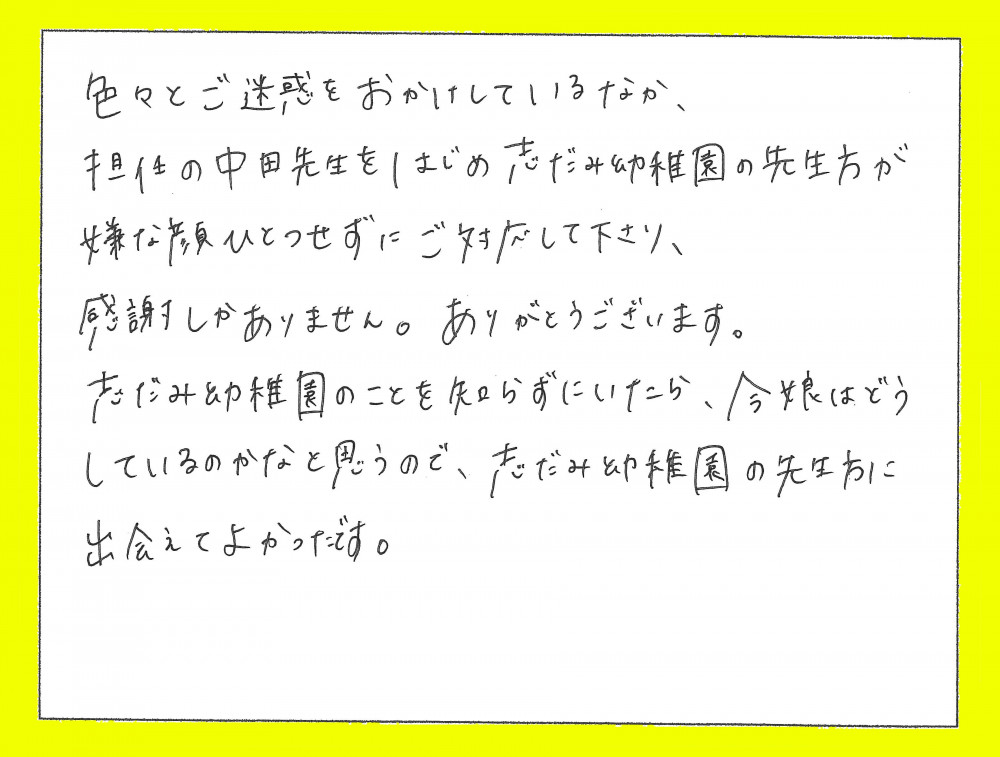 色々とご迷惑をおかけしているなか、
担任の中田先生をはじめ志だみ幼稚園の先生方が
嫌な顔ひとつせずにご対応して下さり、
感謝しかありません。ありがとうございます。
志だみ幼稚園のことを知らずにいたら、今娘はどう
しているのかなと思うので、志だみ幼稚園の先生方に
出会えてよかったです。